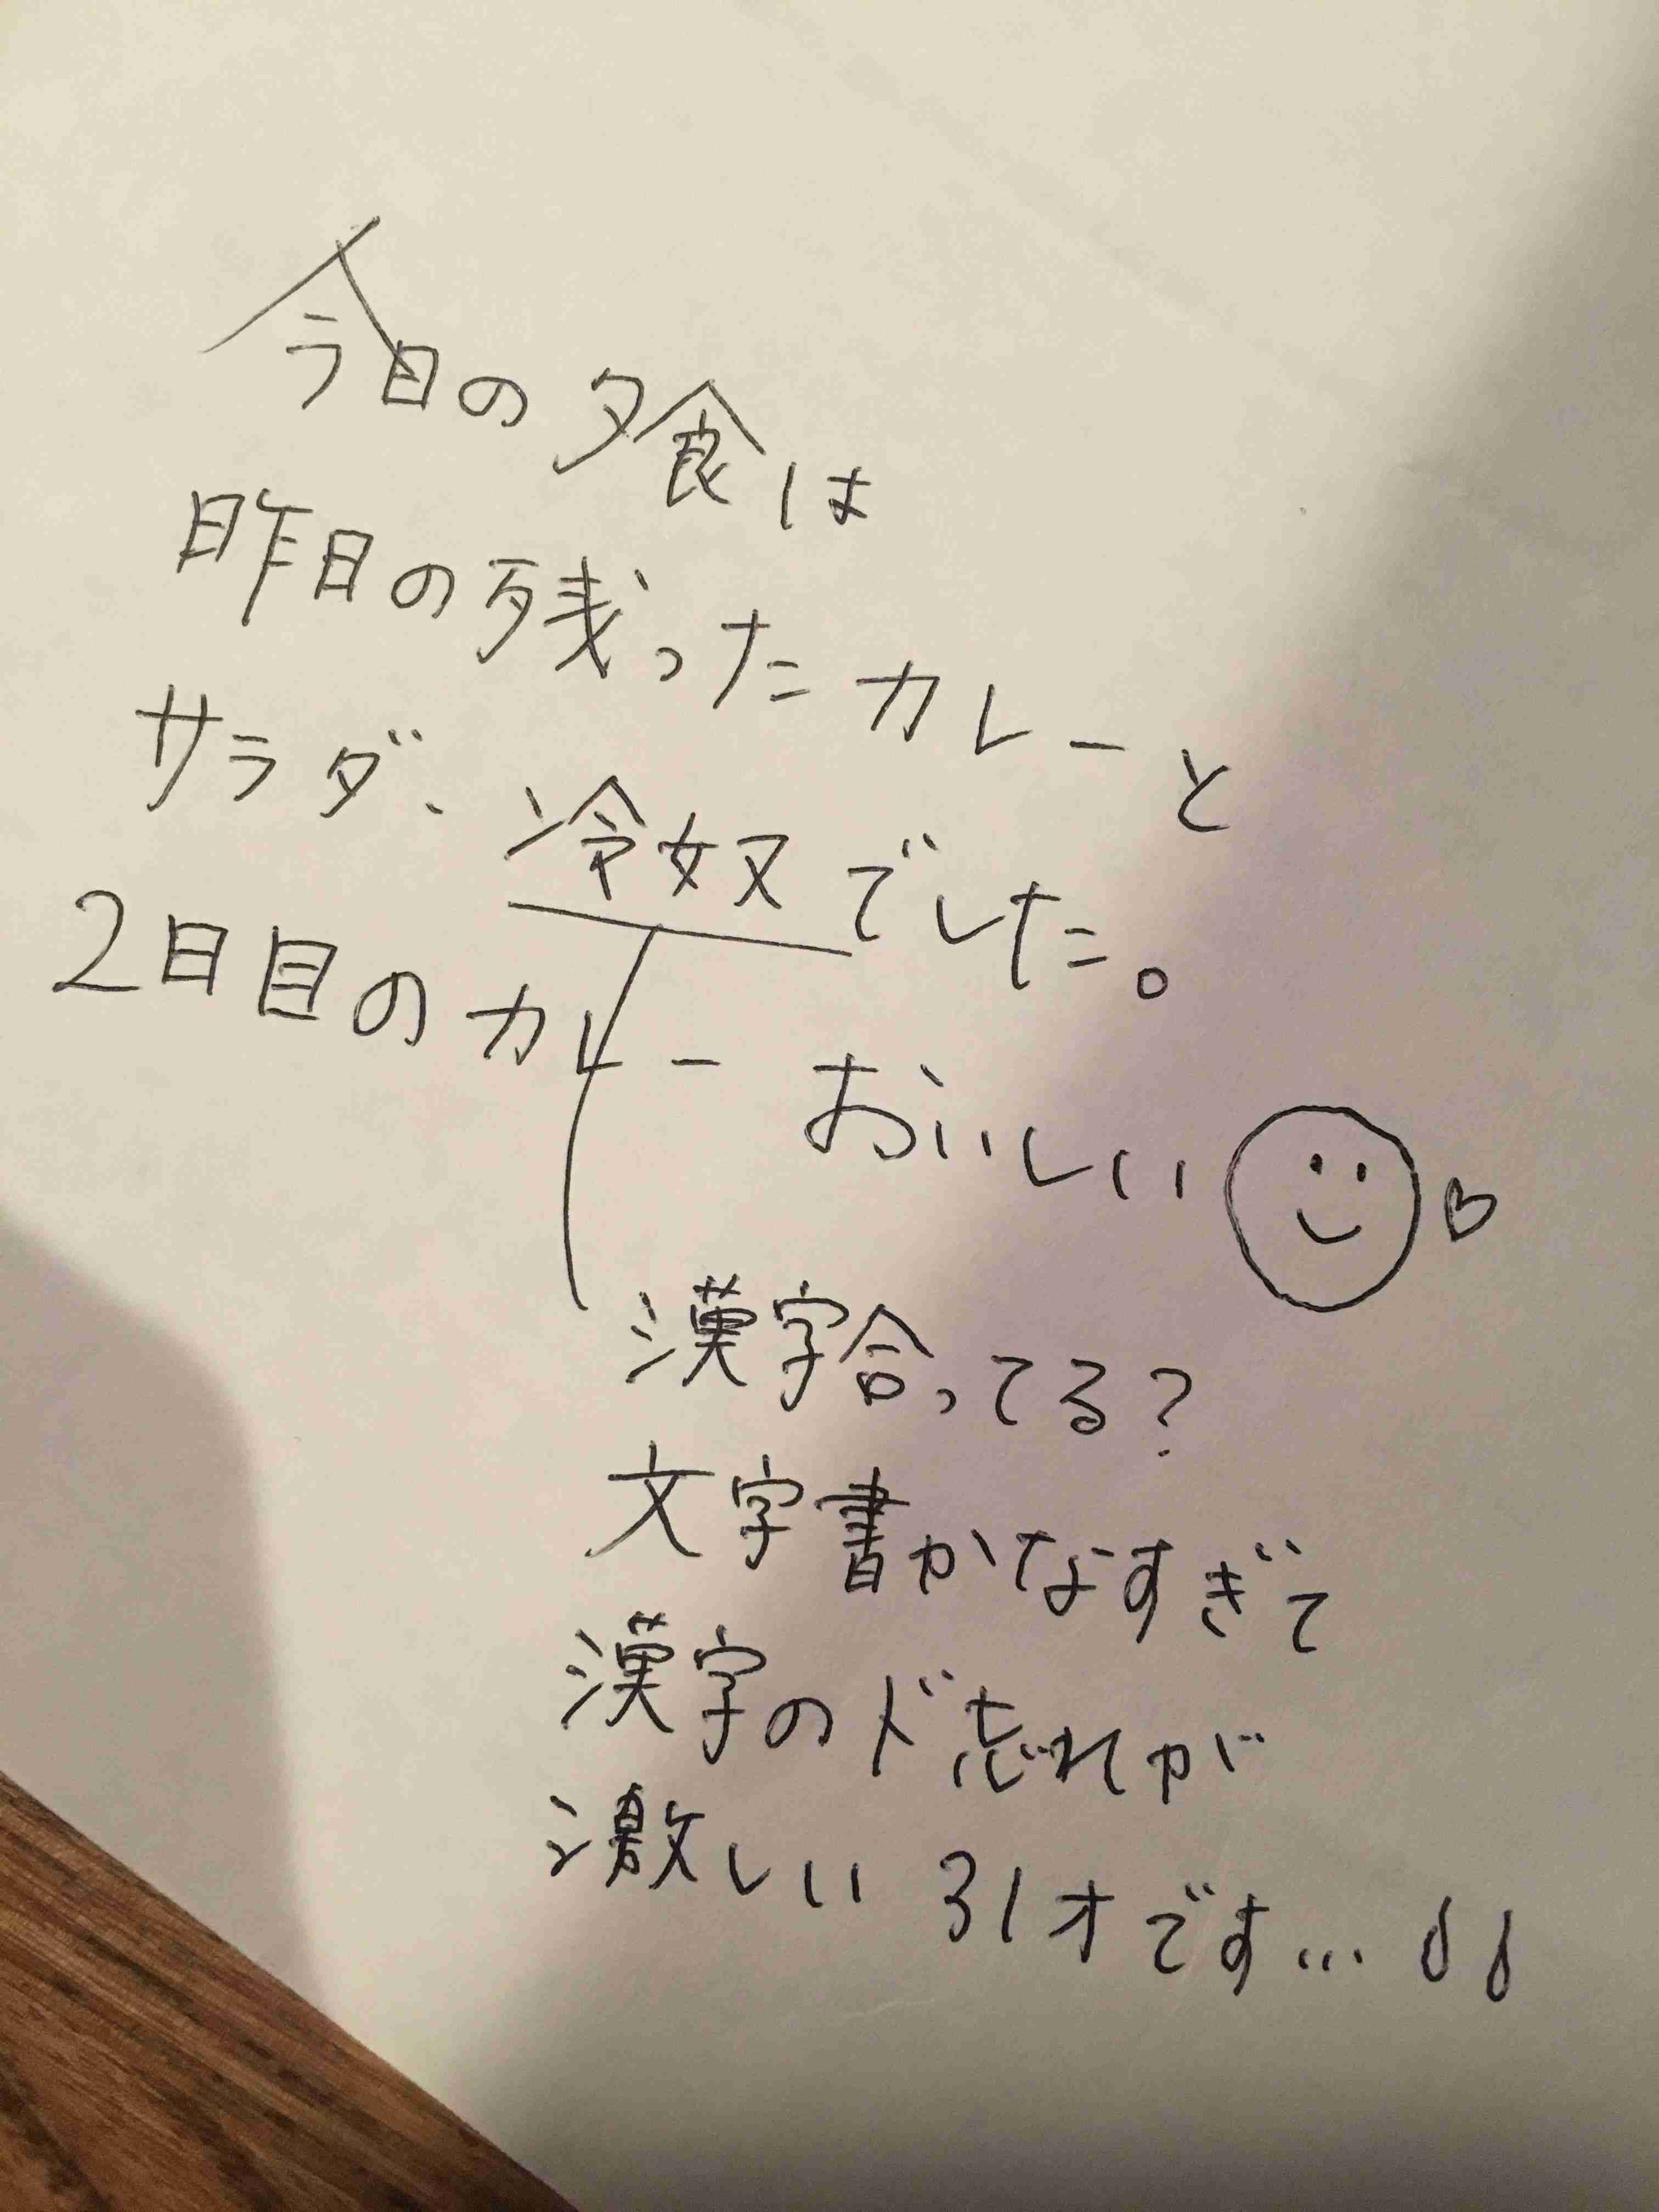 今日の夕食は
昨日の残ったカレーと
サラダ、冷奴でした。
2日目のカレーおいしい
漢字合ってる?
文字書かなすぎて
漢字のド忘れが
激しい31才です…